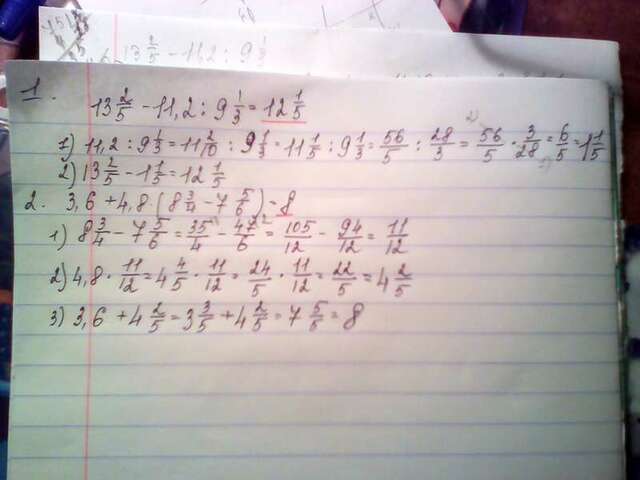 13 2/5 - 11,2 : 9 1/3
1.
13 2/5 - 11,2 : 9 1/3 = 12 1/5
1) 11,2 : 9 1/3 = 11 2/10 : 9 1/3 = 11 1/5 : 9 1/3 = 56/5 : 28/3 = 56/5 · 3/28 = 6/5 = 1 1/5
2) 13 2/5 - 1 1/5 = 12 1/5
2. 3,6 + 4,8 (8 3/4 - 7 5/6) = 8
1) 8 3/4 - 7 5/6 = 35/4 - 47/6 = 105/12 - 94/12 = 11/12
2) 4,8 · 11/12 = 4 4/5 · 11/12 = 24/5 · 11/12 = 22/5 = 4 2/5
3) 3,6 + 4 2/5 = 3 3/5 + 4 2/5 = 7 5/5 = 8